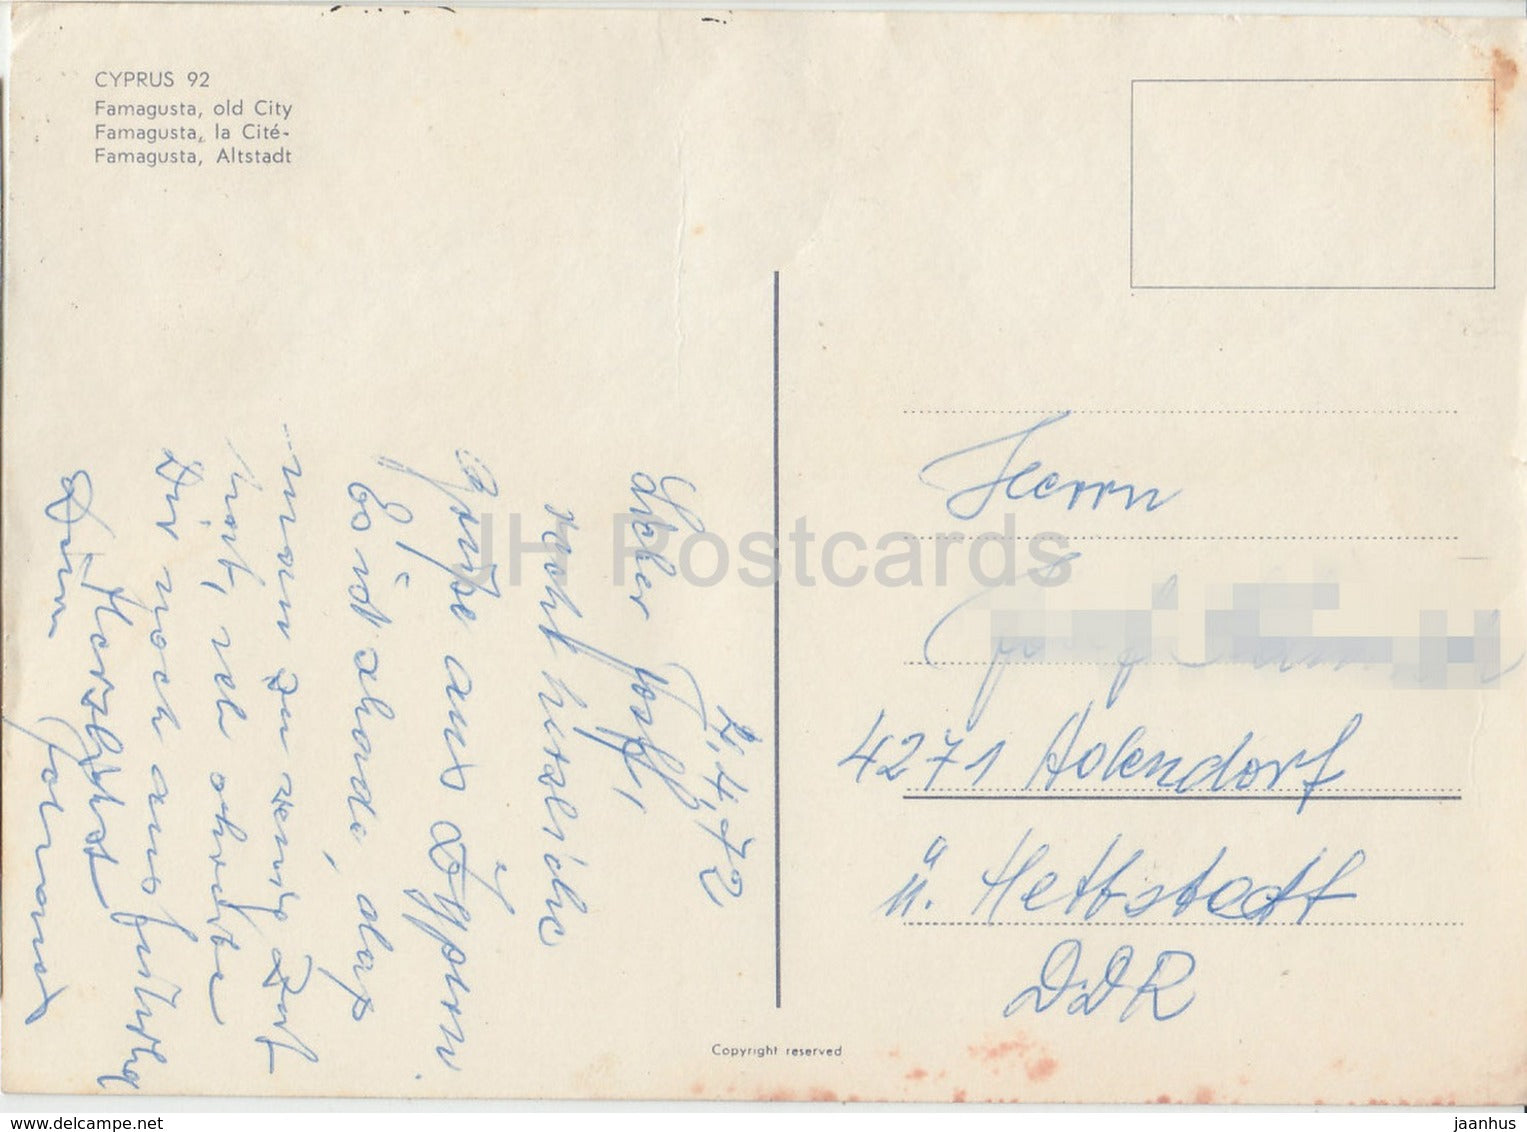 CYPRUS 92
Famagusta, old City
Famagusta, la Cité-
Famagusta, Altstadt
4.4.72
Lieber Josef!
recht herzliche
Grüße aus Zypern.
Es ist schade, daß
man zu wenig Zeit
hat, ich schreibe
Dir noch ausführlich
Herzlichst
Dein
Herrn
4271
ü. Hettstedt
DDR
Copyright reserved
JH Postcards
www.delcampe.net
jaanhus